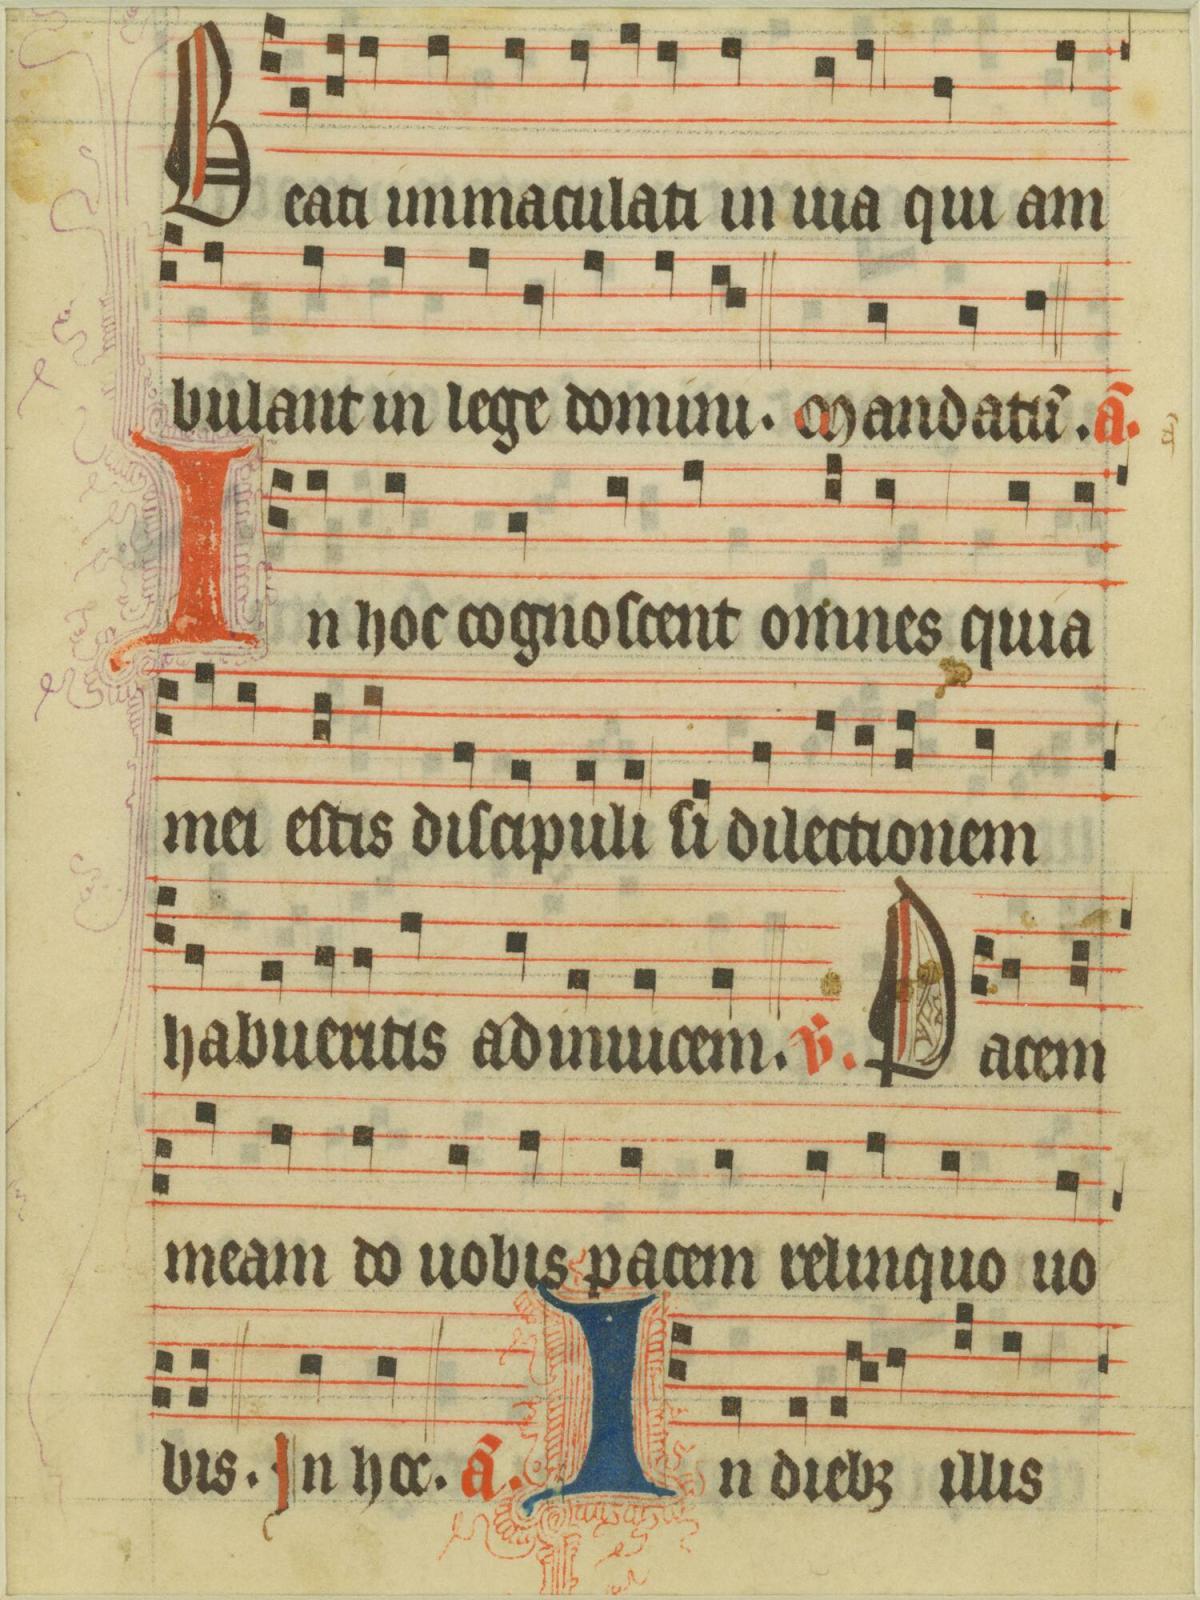 Beati inmaculati in uia qui am
bulant in lege domini. Mandatū. a̅.
In hoc cognoscent omnes quia
mei estis discipuli si dilectionem
habueritis adinuicem. v̅. Pacem
meam do uobis pacem relinquo uo
bis. In hoc. a̅. In dieb₃ illis